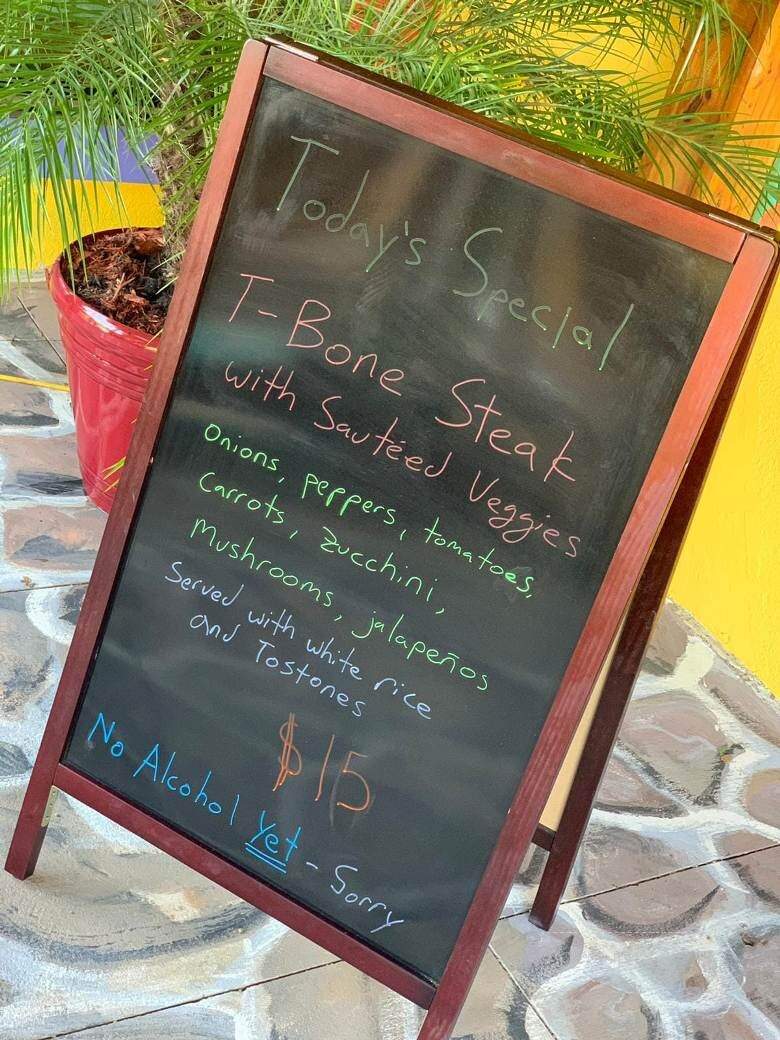 Today's Special
T-Bone Steak
with Sautéed Veggies
Onions, peppers, tomatoes,
Carrots, Zucchini,
Mushrooms, jalapeños
Served with white rice
and Tostones
$15
No Alcohol Yet - Sorry